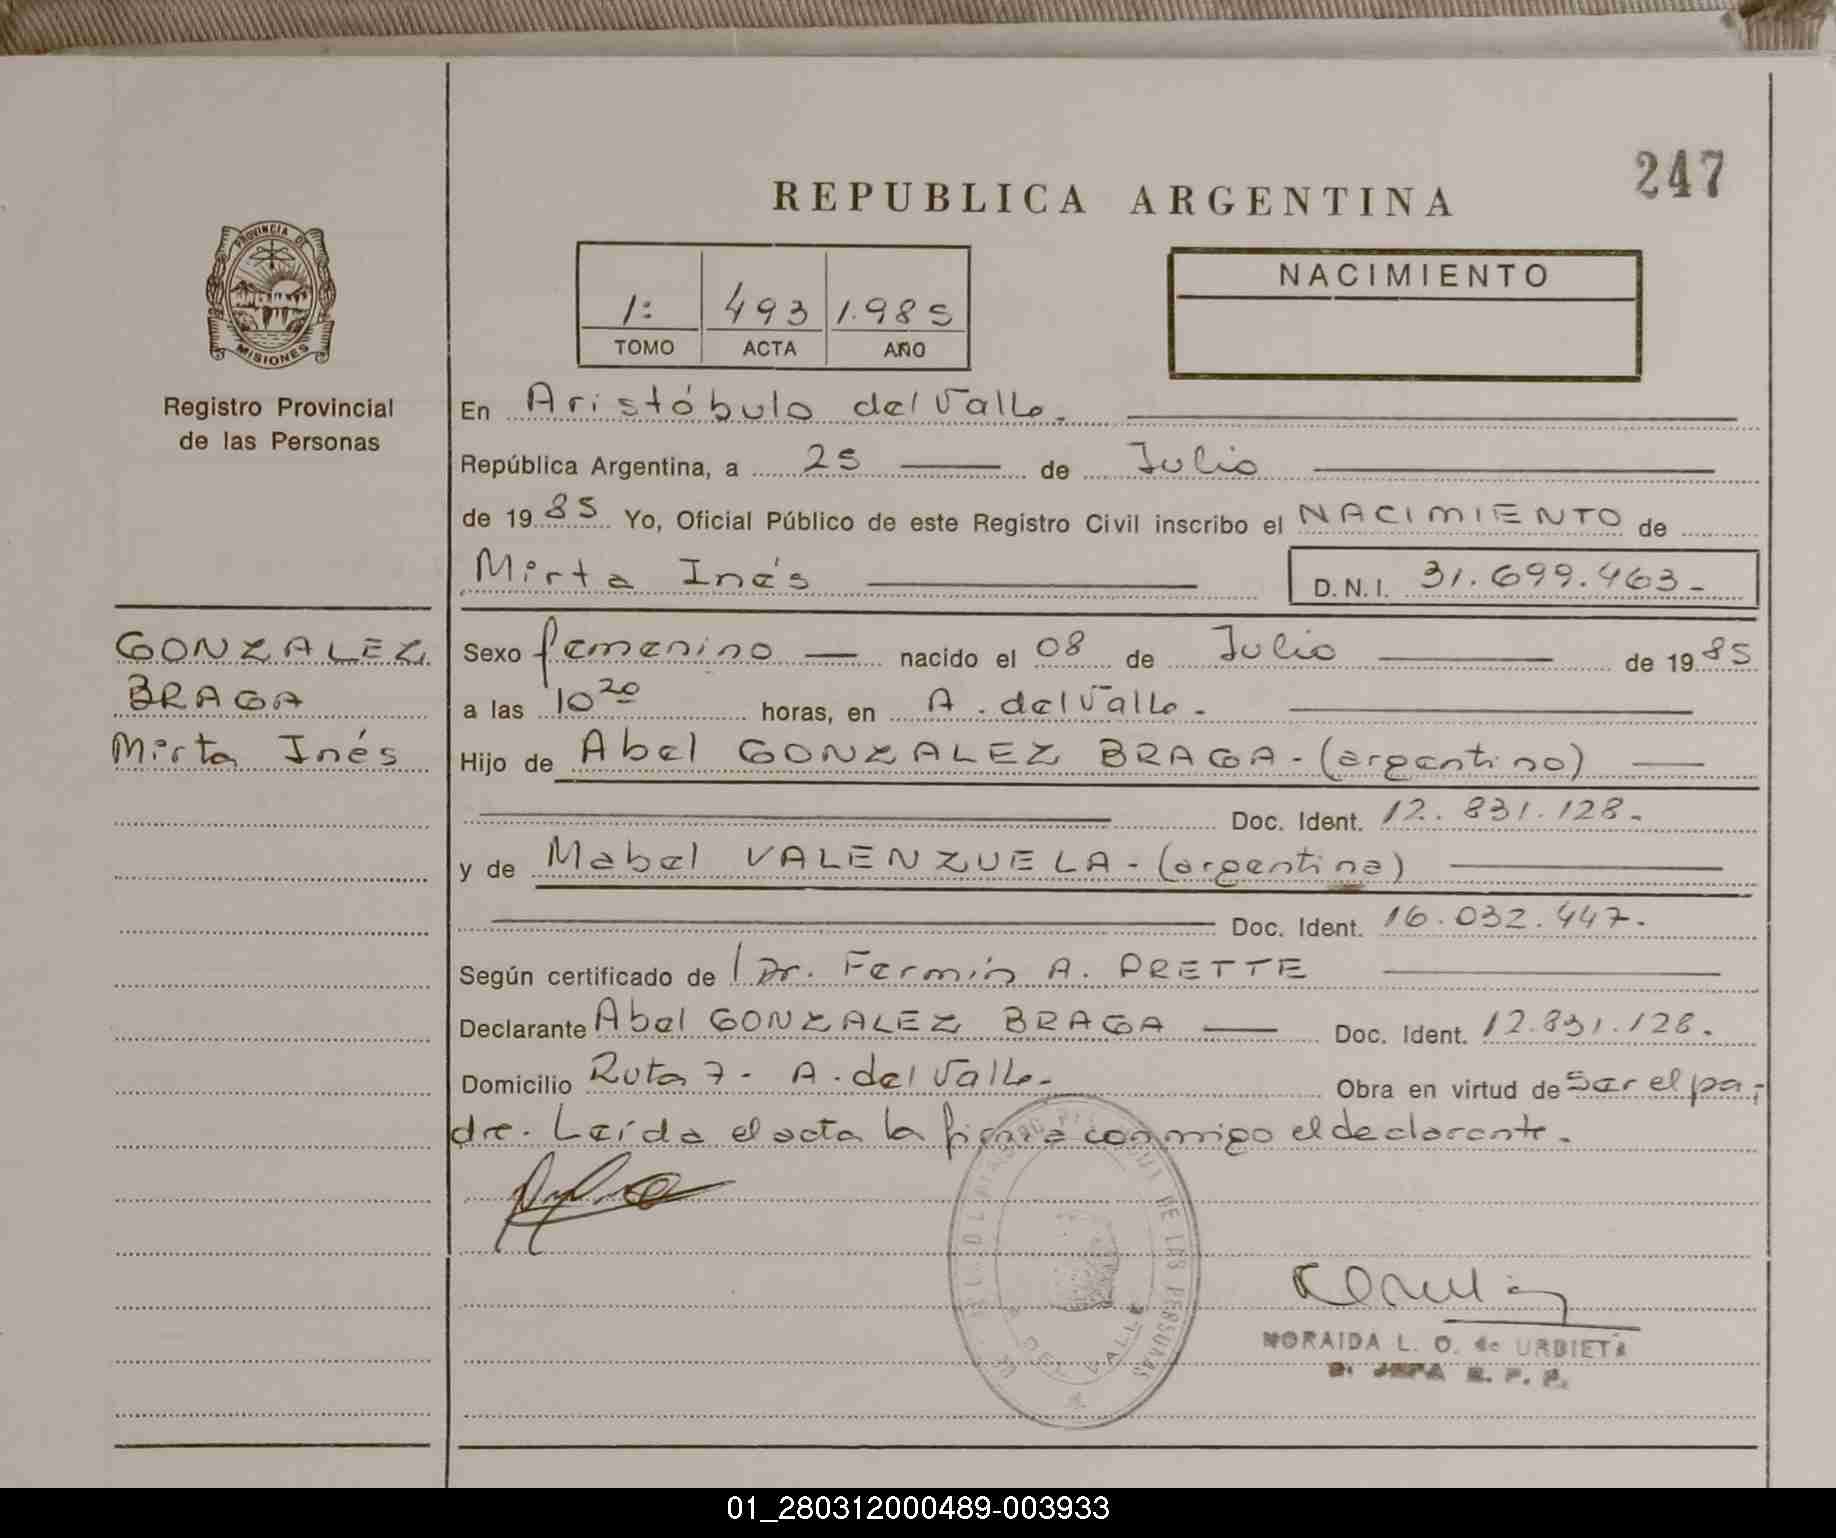 247
REPUBLICA ARGENTINA
PROVINCIA DE
MISIONES
Registro Provincial
de las Personas
1: 493 1.985
TOMO ACTA AÑO
NACIMIENTO
En Aristóbulo del Valle.
República Argentina, a 25 de Julio
de 1985 Yo, Oficial Público de este Registro Civil inscribo el NACIMIENTO de
Mirta Inés D.N.I. 31.699.463-
GONZALEZ
BRAGA
Mirta Inés
Sexo femenino nacido el 08 de Julio de 1985
a las 10 20 horas, en A. del Valle.
Hijo de Abel GONZALEZ BRAGA-(argentino)
Doc. Ident. 12.831.128.
y de Mabel VALENZUELA-(argentina)
Doc. Ident. 16.032.447.
Según certificado de Dr. Fermín A. PRETTE
Declarante Abel GONZALEZ BRAGA Doc. Ident. 12.831.128.
Domicilio Ruta 7- A. del Valle- Obra en virtud de ser el pa-
dre. Leída el acta la firma conmigo el declarante.
DE LAS PERSONAS
DEL VALLE
NORAIDA L. O. de URBIETA
JEFA R. P. P.
01_280312000489-003933